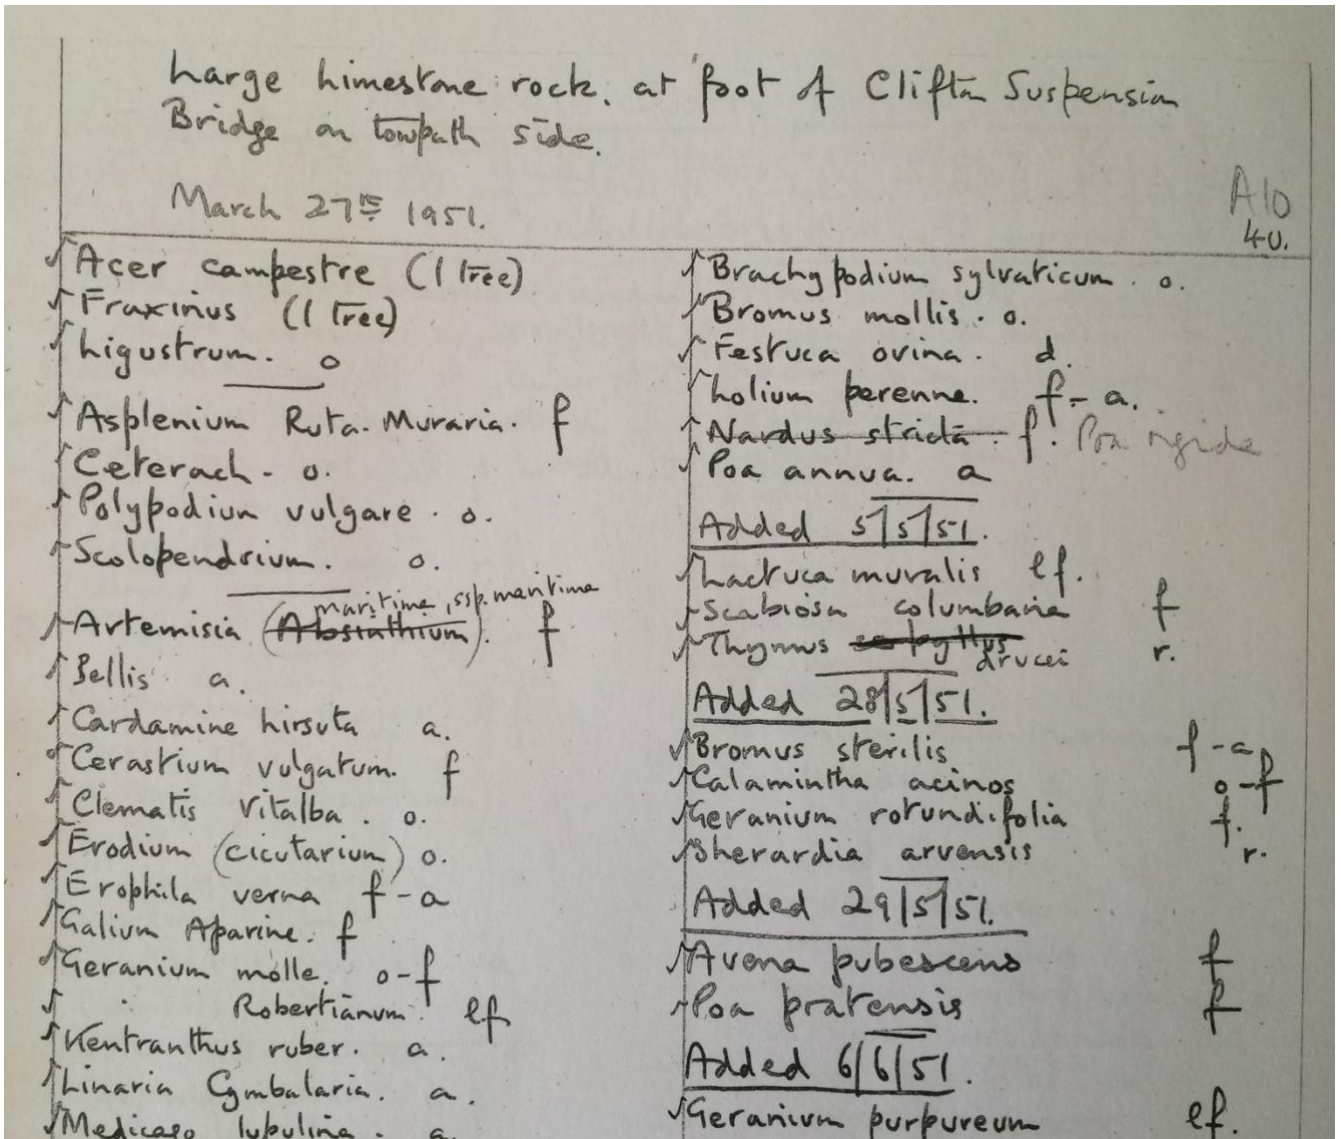 Large Limestone rock. at foot of Clifton Suspension
Bridge on towpath side.
March 27th 1951.
A10
40.
Acer campestre (1 tree)
Fraxinus (1 tree)
Ligustrum. o
Asplenium Ruta-Muraria. f
Ceterach - o.
Polypodium vulgare. o.
Scolopendrium. o.
maritima, ssp. maritima
Artemisia (Absinthium). f
Bellis a.
Cardamine hirsuta a.
Cerastium vulgatum. f
Clematis Vitalba. o.
Erodium (cicutarium) o.
Erophila verna f-a
Galium Aparine. f
Geranium molle. o-f
Robertianum. lf
Kentranthus ruber. a.
Linaria Cymbalaria. a.
Medicago lupulina. a.
Brachypodium sylvaticum. o.
Bromus mollis. o.
Festuca ovina. d.
Lolium perenne. f-a.
Nardus stricta. f. Poa rigida
Poa annua. a
Added 5/5/51.
Lactuca muralis lf.
Scabiosa columbaria f
Thymus drucei r.
Added 28/5/51.
Bromus sterilis f-a
Calamintha acinos o-f
Geranium rotundifolia f.
Sherardia arvensis r.
Added 29/5/51.
Avena pubescens f
Poa pratensis f
Added 6/6/51.
Geranium purpureum lf.